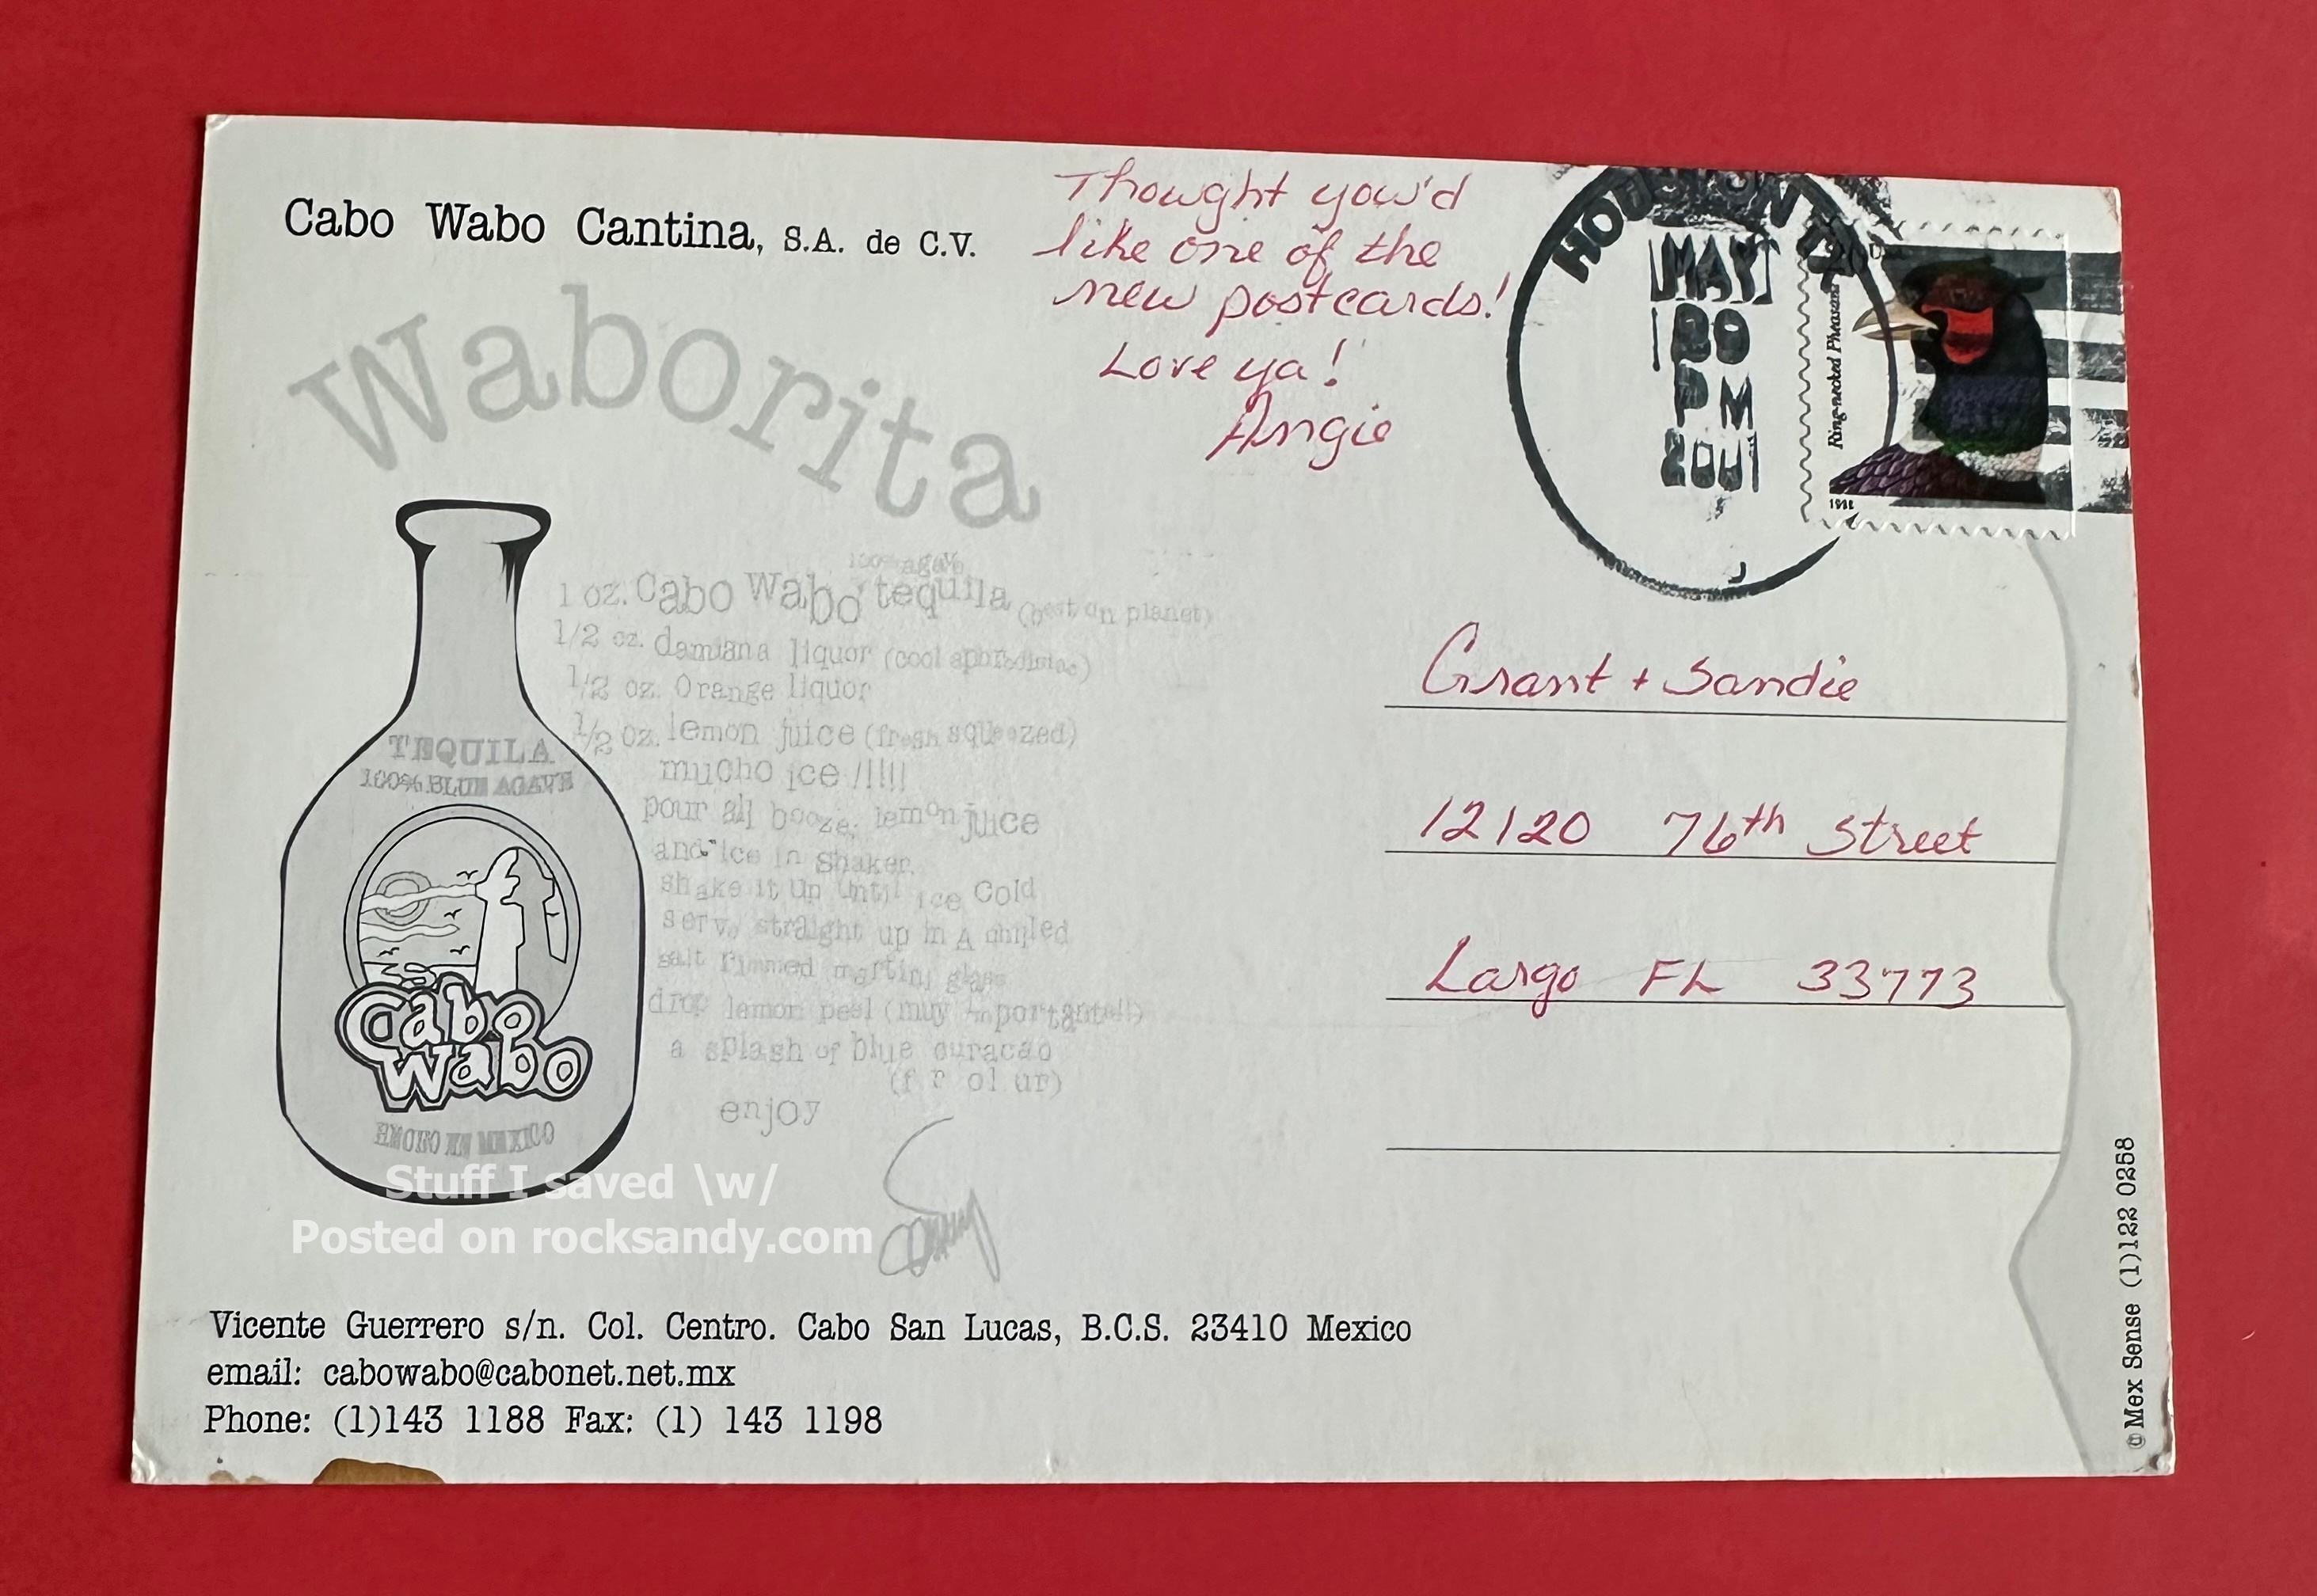 Cabo Wabo Cantina, S.A. de C.V.
Thought you'd
like one of the
new postcards!
Love ya!
Angie
HOUSTON TX
MAY
PM
2001
Ring-necked Pheasant
1998
Waborita
100% agave
1 oz. Cabo Wabo tequila (best on planet)
1/2 oz. damiana liquor (cool aphrodisiac)
1/2 oz. Orange liquor
1/2 oz. lemon juice (fresh squeezed)
mucho ice !!!!!
pour all booze, lemon juice
and ice in shaker.
shake it up until ice cold
serve straight up in A chilled
salt rimmed martini glass
drop lemon peel (muy importante!!)
a splash of blue curacao
enjoy
TEQUILA
100% BLUE AGAVE
Cabo
Wabo
HECHO EN MEXICO
Grant + Sandie
12120 76th Street
Largo FL 33773
Stuff I saved \w/
Posted on rocksandy.com
Vicente Guerrero s/n. Col. Centro. Cabo San Lucas, B.C.S. 23410 Mexico
email: cabowabo@cabonet.net.mx
Phone: (1)143 1188 Fax: (1) 143 1198
© Mex Sense (1)122 0258